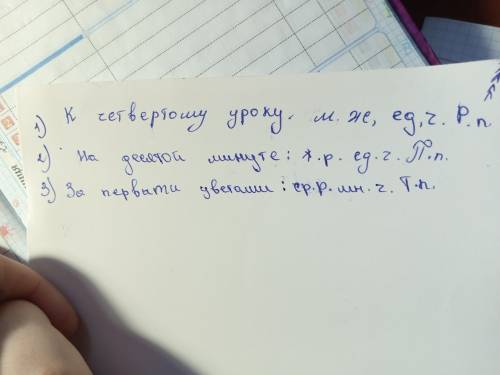 1) К четвертому уроку. м. ж, ед. ч. Р.п
2) На десятой минуте: ж.р. ед.ч. П.п.
3) За первыти цветами: ср.р. мн.ч. Т.п.